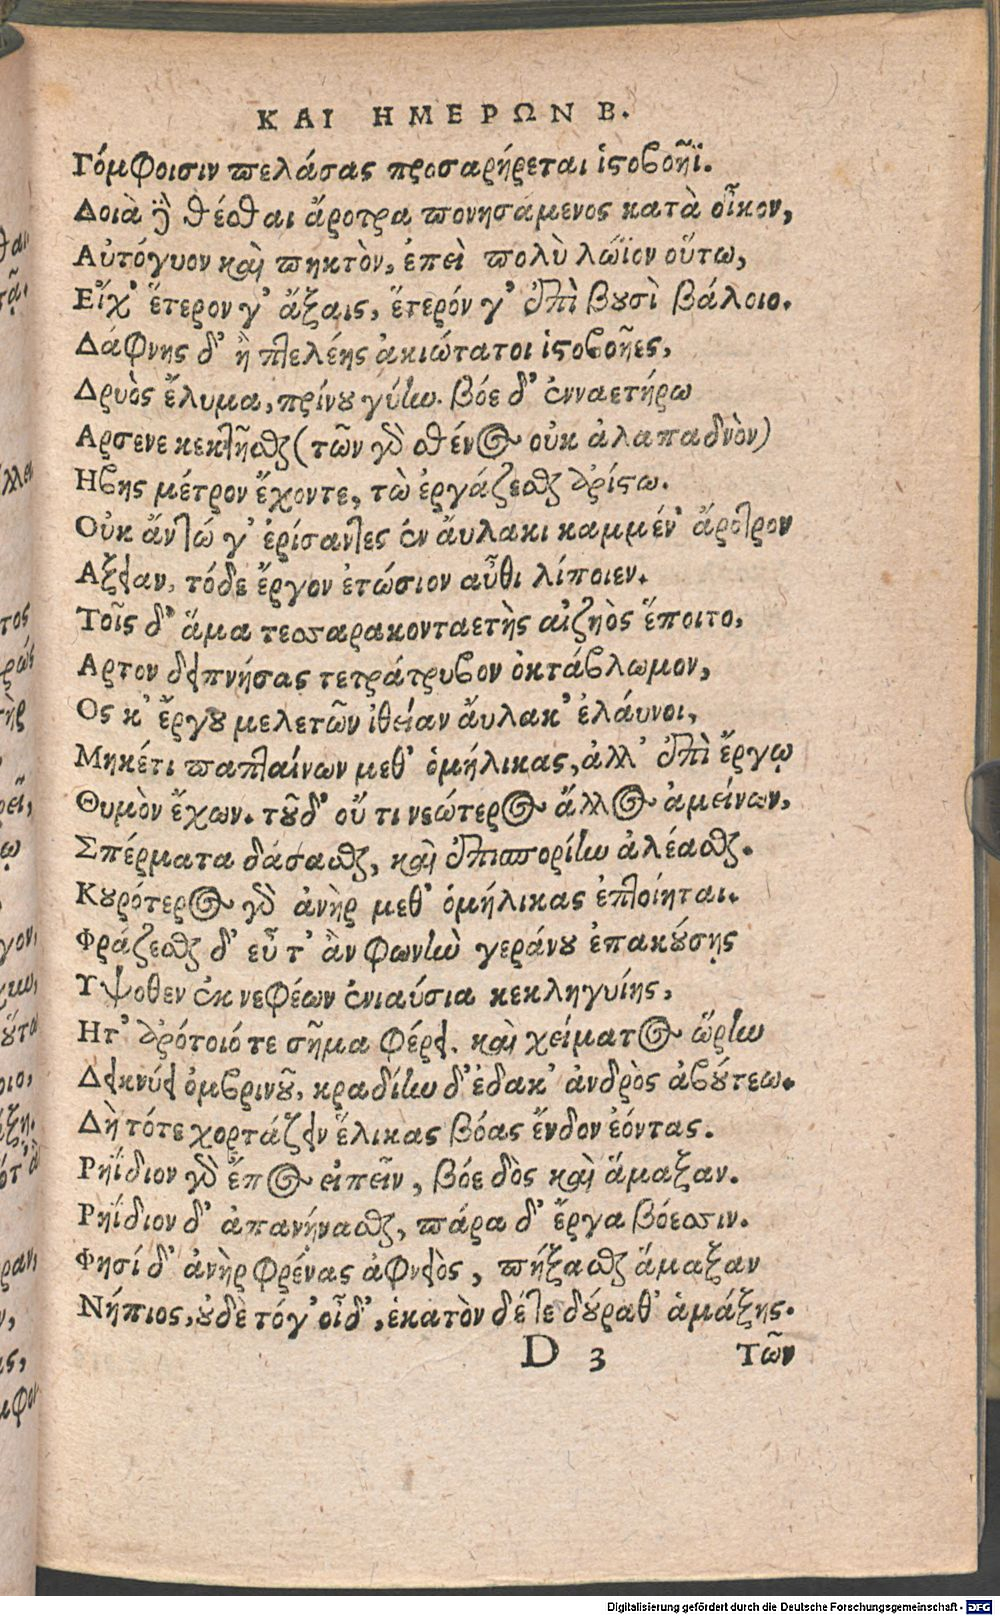 ΚΑΙ ΗΜΕΡΩΝ Β.
Γόμφοισιν πελάσας προσαρήρεται ἱστοβοῆϊ.
Δοιὰ δὲ θέσθαι ἄροτρα πονησάμενος κατὰ οἶκον,
Αὐτόγυον καὶ πηκτὸν, ἐπεὶ πολὺ λώϊον οὕτω,
Εἴχ' ἕτερον γ' ἄξαις, ἕτερόν γ' ἐπὶ βουσὶ βάλοιο.
Δάφνης δ' ἢ πτελέης ἀκιώτατοι ἱστοβοῆες,
Δρυὸς ἔλυμα, πρίνου γύην. βόε δ' ἐνναετήρω
Αρσενε κεκτῆσθαι (τῶν γὰρ σθένος οὐκ ἀλαπαδνὸν)
Ηβης μέτρον ἔχοντε, τὼ ἐργάζεσθαι ἀρίστω.
Οὐκ ἄν τώ γ' ἐρίσαντες ἐν ἄυλακι καμμέν' ἄροτρον
Αξειαν, τόδε ἔργον ἐτώσιον αὖθι λίποιεν.
Τοῖς δ' ἅμα τεσσαρακονταετὴς αἰζηὸς ἕποιτο,
Αρτον δειπνήσας τετράτρυβον ὀκτάβλωμον,
Ος κ' ἔργου μελετῶν ἰθείαν ἄυλακ' ἐλάυνοι,
Μηκέτι παπταίνων μεθ' ὁμήλικας, ἀλλ' ἐπὶ ἔργῳ
Θυμὸν ἔχων. τοῦδ' οὔ τι νεώτερος ἄλλος ἀμείνων,
Σπέρματα δάσασθαι, καὶ ἐπισπορίην ἀλέασθαι.
Κουρότερος γὰρ ἀνὴρ μεθ' ὁμήλικας ἐπτοίηται.
Φράζεσθαι δ' εὖ τ' ἂν φωνὴν γεράνου ἐπακούσῃς
Υψοθεν ἐκ νεφέων ἐνιαύσια κεκληγυίης,
Ητ' ἀρότοιό τε σῆμα φέρει. καὶ χείματος ὥρην
Δεικνύει ὀμβρινοῦ, κραδίην δ' ἔδακ' ἀνδρὸς ἀβούτεω.
Δὴ τότε χορτάζειν ἕλικας βόας ἔνδον ἐόντας.
Ρηΐδιον γὰρ ἔπος εἰπεῖν, βόε δὸς καὶ ἅμαξαν.
Ρηΐδιον δ' ἀπανήνασθαι, πάρα δ' ἔργα βόεσσιν.
Φησί δ' ἀνὴρ φρένας ἀφνειὸς, πήξασθαι ἅμαξαν
Νήπιος, οὐδὲ τόγ' οἶδ', ἑκατὸν δέ τε δούραθ' ἁμάξης.
D 3 Τῶν
Digitalisierung gefördert durch die Deutsche Forschungsgemeinschaft - DFG